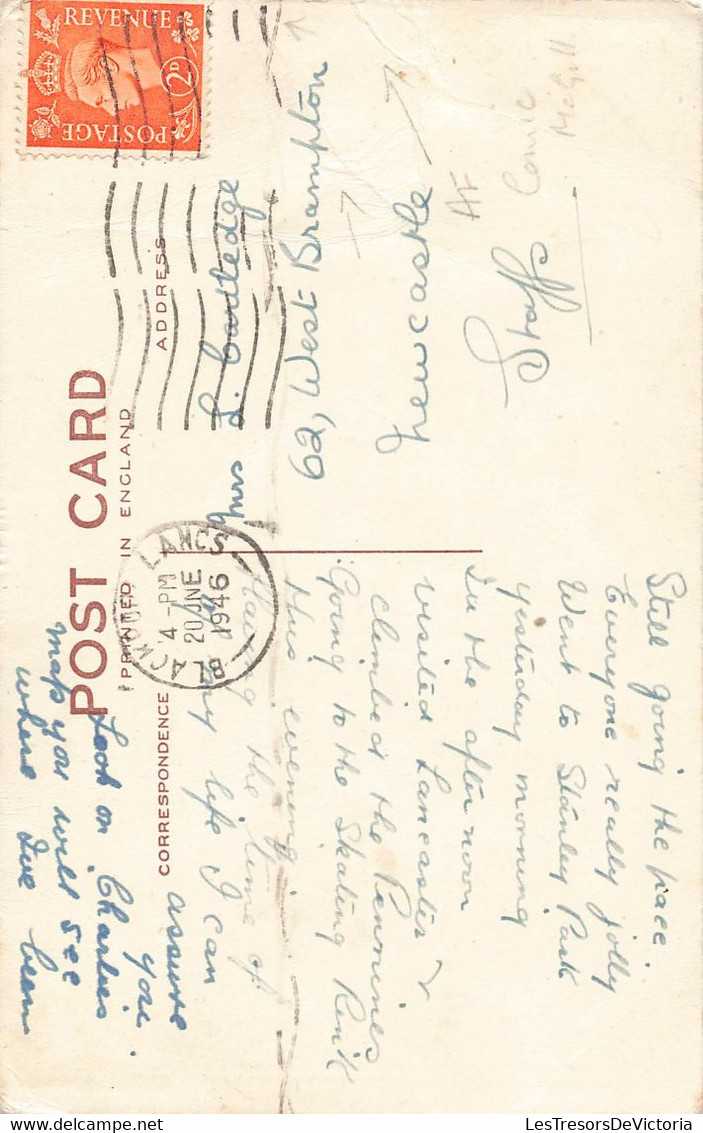 POST CARD
PRINTED IN ENGLAND
CORRESPONDENCE
ADDRESS
REVENUE
2D
POSTAGE
LANCS
4 - PM
20 JNE
1946
Still going the pace
Everyone really jolly
Went to Stanley Park
yesterday morning
In the afternoon
visited Lancaster &
climbed the Pennines
Going to the Skating Rink
this evening
Having the time of
my life I can
assure
you.
Look on Charlies
map you will see
where Ive been
Mrs L. Cartledge
62, West Brampton
Newcastle
Staffs
AF
Comic
McGill
LesTresorsDeVictoria
delcampe.net